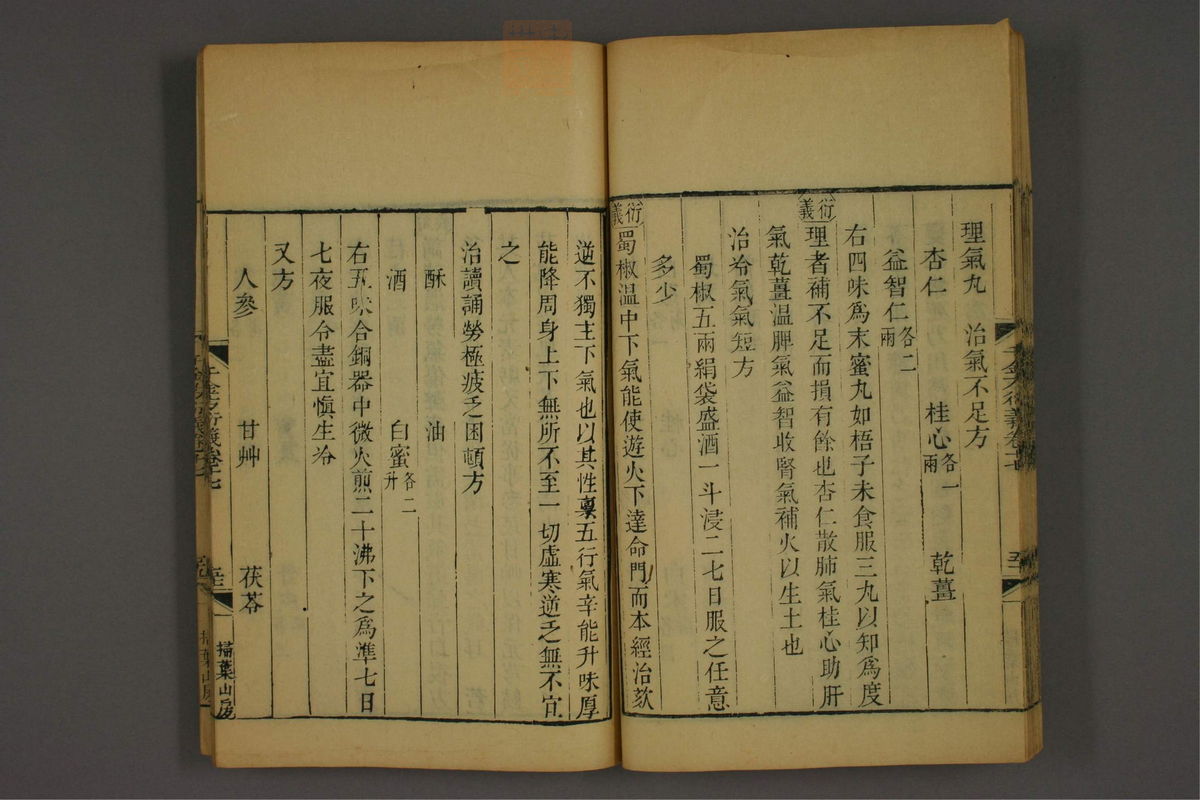 理氣丸　治氣不足方
杏仁　桂心各一兩　乾薑
益智仁各二兩
右四味爲末蜜丸如梧子未食服三丸以知爲度
衍義理者補不足而損有餘也杏仁散肺氣桂心助肝
氣乾薑溫脾氣益智收腎氣補火以生土也
治冷氣氣短方
蜀椒五兩絹袋盛酒一斗浸二七日服之任意
多少
衍義蜀椒溫中下氣能使遊火下達命門而本經治欬
逆不獨主下氣也以其性稟五行氣辛能升味厚
能降周身上下無所不至一切虛寒逆乏無不宜
之
治讀誦勞極疲乏困頓方
酥　油
酒　白蜜各二升
右五味合銅器中微火煎二十沸下之爲準七日
七夜服令盡宜愼生冷
又方
人參　甘艸　茯苓
千金方衍義卷十七
掃葉山房